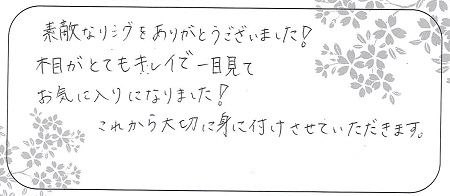 素敵なリングをありがとうございました!
木目がとてもキレイで一目見て
お気に入りになりました!
これから大切に身に付けさせていただきます。